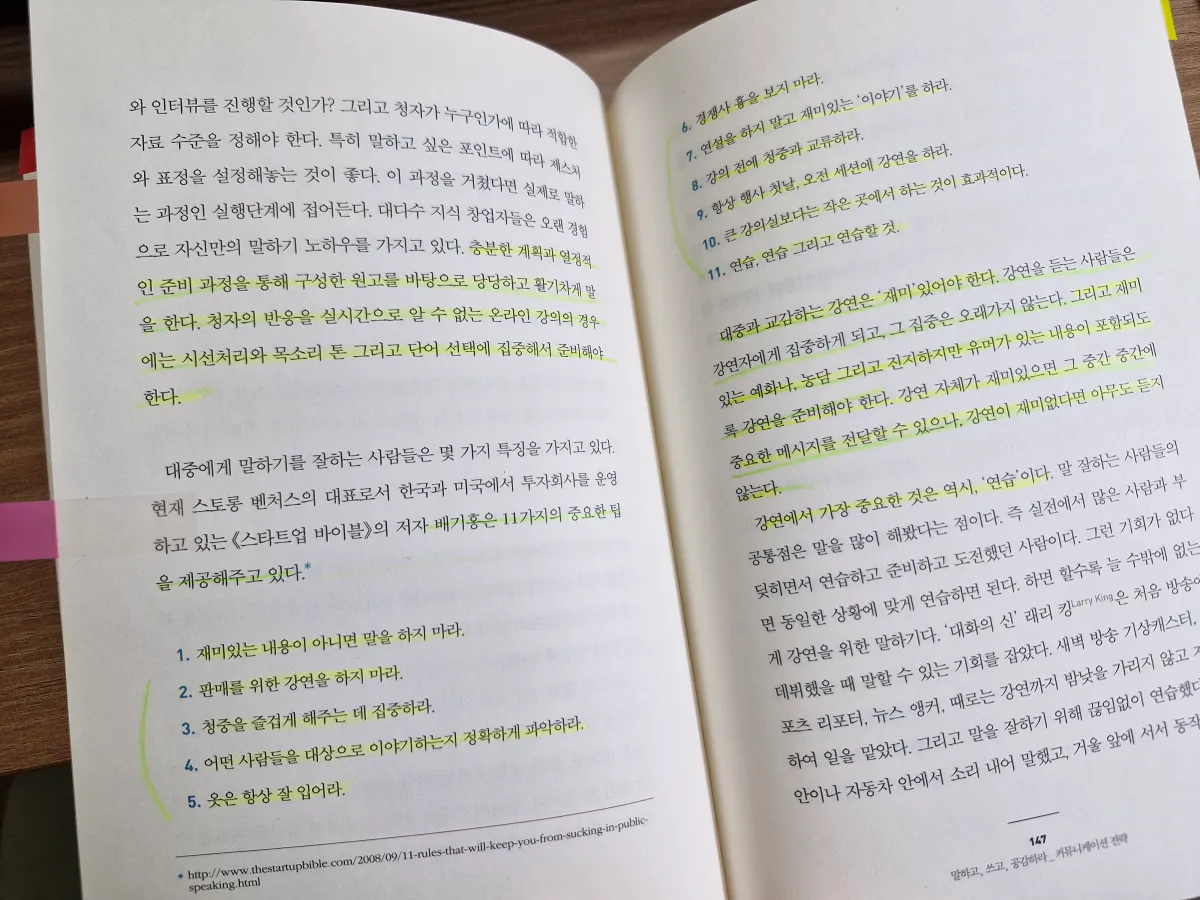 와 인터뷰를 진행할 것인가? 그리고 청자가 누구인가에 따라 적합한
자료 수준을 정해야 한다. 특히 말하고 싶은 포인트에 따라 제스처
와 표정을 설정해놓는 것이 좋다. 이 과정을 거쳤다면 실제로 말하
는 과정인 실행단계에 접어든다. 대다수 지식 창업자들은 오랜 경험
으로 자신만의 말하기 노하우를 가지고 있다. 충분한 계획과 열정적
인 준비 과정을 통해 구성한 원고를 바탕으로 당당하고 활기차게 말
을 한다. 청자의 반응을 실시간으로 알 수 없는 온라인 강의의 경우
에는 시선처리와 목소리 톤 그리고 단어 선택에 집중해서 준비해야
한다.
대중에게 말하기를 잘하는 사람들은 몇 가지 특징을 가지고 있다.
현재 스토롱 벤처스의 대표로서 한국과 미국에서 투자회사를 운영
하고 있는 《스타트업 바이블》의 저자 배기홍은 11가지의 중요한 팁
을 제공해주고 있다.*
1. 재미있는 내용이 아니면 말을 하지 마라.
2. 판매를 위한 강연을 하지 마라.
3. 청중을 즐겁게 해주는 데 집중하라.
4. 어떤 사람들을 대상으로 이야기하는지 정확하게 파악하라.
5. 옷은 항상 잘 입어라.
* http://www.thestartupbible.com/2008/09/11-rules-that-will-keep-you-from-sucking-in-public-
speaking.html
6. 경쟁사 흉을 보지 마라.
7. 연설을 하지 말고 재미있는 '이야기'를 하라.
8. 강의 전에 청중과 교류하라.
9. 항상 행사 첫날, 오전 세션에 강연을 하라.
10. 큰 강의실보다는 작은 곳에서 하는 것이 효과적이다.
11. 연습, 연습 그리고 연습할 것.
대중과 교감하는 강연은 '재미'있어야 한다. 강연을 듣는 사람들은
강연자에게 집중하게 되고, 그 집중은 오래가지 않는다. 그리고 재미
있는 예화나, 농담 그리고 진지하지만 유머가 있는 내용이 포함되도
록 강연을 준비해야 한다. 강연 자체가 재미있으면 그 중간 중간에
중요한 메시지를 전달할 수 있으나, 강연이 재미없다면 아무도 듣지
않는다.
강연에서 가장 중요한 것은 역시, '연습'이다. 말 잘하는 사람들의
공통점은 말을 많이 해봤다는 점이다. 즉 실전에서 많은 사람과 부
딪히면서 연습하고 준비하고 도전했던 사람이다. 그런 기회가 없다
면 동일한 상황에 맞게 연습하면 된다. 하면 할수록 늘 수밖에 없는
게 강연을 위한 말하기다. '대화의 신' 래리 킹Larry King은 처음 방송에
데뷔했을 때 말할 수 있는 기회를 잡았다. 새벽 방송 기상캐스터,
포츠 리포터, 뉴스 앵커, 때로는 강연까지 밤낮을 가리지 않고
하여 일을 맡았다. 그리고 말을 잘하기 위해 끊임없이 연습했다
안이나 자동차 안에서 소리 내어 말했고, 거울 앞에 서서 동작
147
말하고, 쓰고, 공감하라 _ 커뮤니케이션 전략